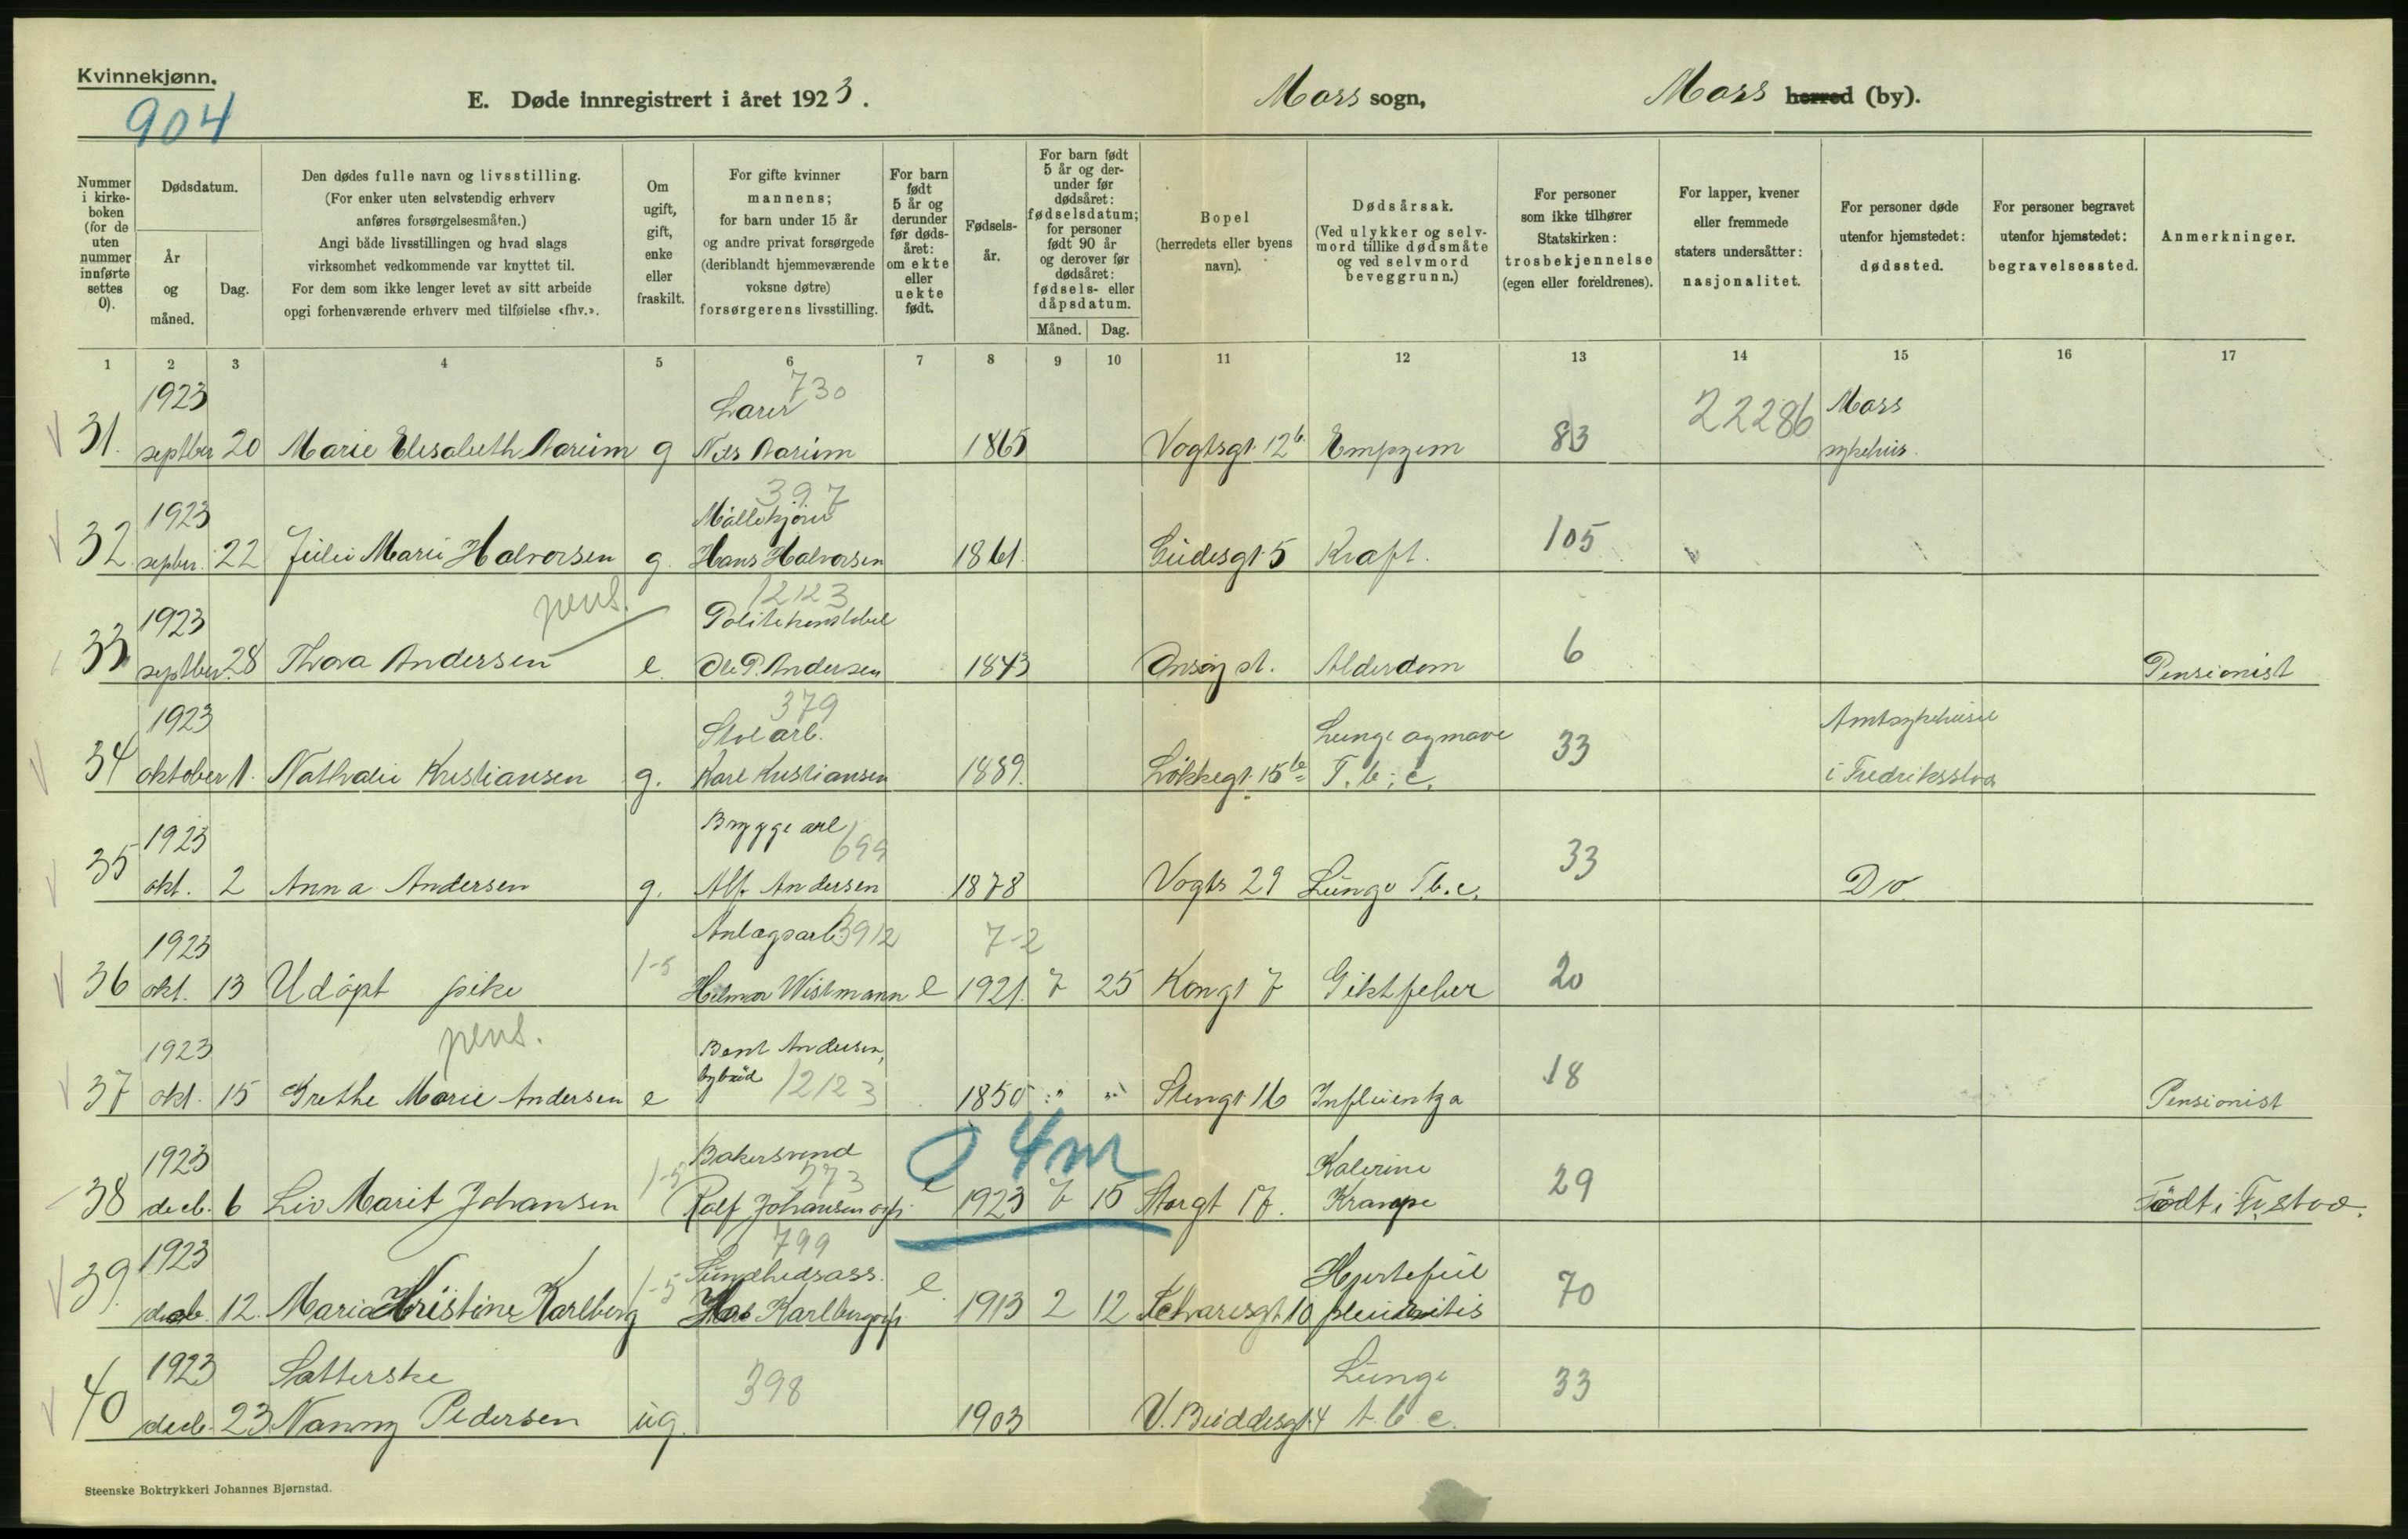 Kvinnekjønn.
904
E. Døde innregistrert i året 1923.
Moss sogn,
Moss herred (by).
Nummer i kirkeboken (for de uten nummer innførte settes 0).
Dødsdatum.
År og måned.
Dag.
Den dødes fulle navn og livsstilling.
(For enker uten selvstendig erhverv
anføres forsørgelsesmåten.)
Angi både livsstillingen og hvad slags
virksomhet vedkommende var knyttet til.
For dem som ikke lenger levet av sitt arbeide
opgi forhenværende erhverv med tilføielse «fhv.».
Om ugift, gift, enke eller fraskilt.
For gifte kvinner
mannens;
for barn under 15 år
og andre privat forsørgede
(deriblandt hjemmeværende
voksne døtre)
forsørgerens livsstilling.
For barn født 5 år og derunder før dødsåret: om ekte eller uekte født.
Fødsels-
år.
For barn født
5 år og der-
under før
dødsåret:
fødselsdatum;
for personer
født 90 år
og derover før
dødsåret:
fødsels- eller
dåpsdatum.
Måned. Dag.
Bopel
(herredets eller byens
navn).
Dødsårsak.
(Ved ulykker og selv-
mord tillike dødsmåte
og ved selvmord
beveggrunn.)
For personer
som ikke tilhører
Statskirken:
trosbekjennelse
(egen eller foreldrenes).
For lapper, kvener
eller fremmede
staters undersåtter:
nasjonalitet.
For personer døde
utenfor hjemstedet:
dødssted.
For personer begravet
utenfor hjemstedet:
begravelsessted.
Anmerkninger.
1 2 3 4 5 6 7 8 9 10 11 12 13 14 15 16 17
1923 730 22286 Moss
31. septber 20 Marie Elisabeth Aarum g Nils Aarum 1865 Vogtsgt. 12b. Empyem 83 sykehus.
1923 397
32 septbr. 22 Julie Marie Halvorsen g. Hans Halvorsen 1861. 5 Kraft. 105
1923 pens. 1212 3 Politikonstabel
33 septber. 28 Thora Andersen e. Ole P. Andersen 1843 st. Alderdom 6 Pensionist
1923 379 arb. Lunge og mave Amtsykehuset
34 oktober 1. Nathalie Kristiansen g. Karl Kristiansen 1889. Løkkegt. 15b T.b.c. 33 i Fredriksstad
1923 Brygge arb 699
35 okt. 2 Anna Andersen g. Alf. Andersen 1878 Vogts 29 Lunge T.b.c. 33 Do.
1923 Anlægsarb. 391 2 7-2
36 okt. 13 Udøpt pike 1-5 Hilmar Wistmann e 1921. 7 25 Kongt 7 Giktfeber 20
1923 pens. Bent Andersen,
37 okt. 15 Grethe Marie Andersen e bybud 1212 3 1850 " " Stengt 16 Influentza 18 Pensionist
1923 Bakersvend 273 0 4m
38 decb. 6 Liv Marit Johansen 1-5 Rolf Johansen e 1923 7 15 Storgt 17. Krampe 29 Født i Fr.stad.
1923 799 Sundhedsass. Hjertefeil
39. decb. 12. Maria Kristine Karlberg 1-5 Karlberg e. 1913 2 12 10 70
1923 Lunge
40 decb. 23 Nanny Pedersen ug. 398 1903 V. Buddesgt. 4 t.b.c. 33
Steenske Boktrykkeri Johannes Bjørnstad.